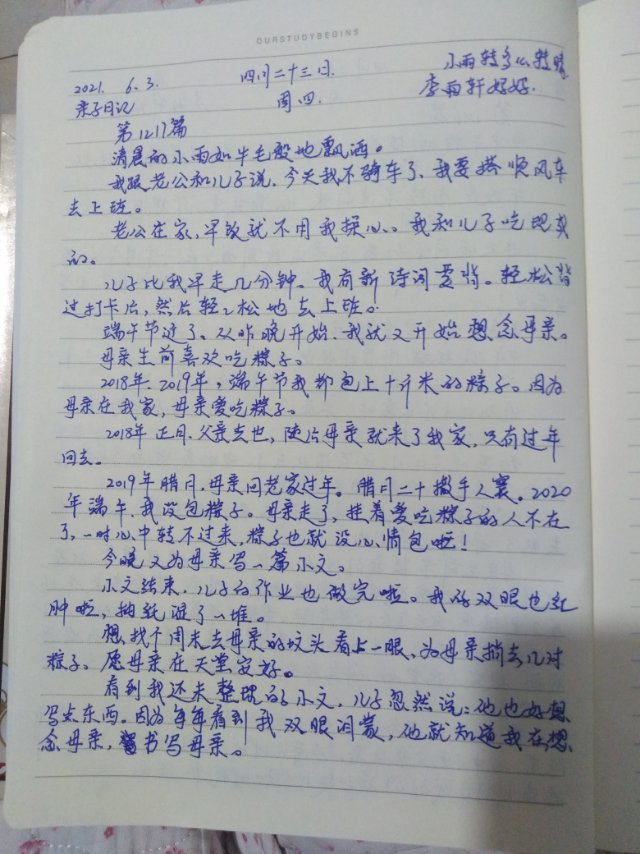 OURSTUDYBEGINS
2021. 6.3. 四月二十三日. 小雨转多云转晴
亲子日记 周四. 李雨轩好好.
第1217篇
清晨的小雨如牛毛般地飘洒。
我跟老公和儿子说,今天我不骑车了,我要搭顺风车
去上班。
老公在家,早饭就不用我操心。我和儿子吃现卖
的。
儿子比我早走几分钟。我有新诗词要背。轻松背
过打卡后,然后轻轻松松地去上班。
端午节过了、从昨晚开始,我就又开始想念母亲。
母亲生前喜欢吃粽子。
2018年、2019年,端午节我都包上十斤米的粽子。因为
母亲在我家,母亲爱吃粽子。
2018年正月,父亲去世,随后母亲就来了我家,只有过年
回去。
2019年腊月,母亲回老家过年。腊月二十撒手人寰。2020
年端午,我没包粽子。母亲走了,挂着爱吃粽子的人不在
了,一时心中转不过来,粽子也就没心情包啦!
今晚又为母亲写一篇小文。
小文结束,儿子的作业也做完啦。我的双眼也红
肿啦,抽纸湿了一堆。
想找个周末去母亲的坟头看上一眼、为母亲捎去几对
粽子、愿母亲在天堂安好。
看到我还未整理的小文,儿子忽然说:他也好想
写点东西。因为每每看到我双眼润蒙,他就知道我在想
念母亲,书写母亲。